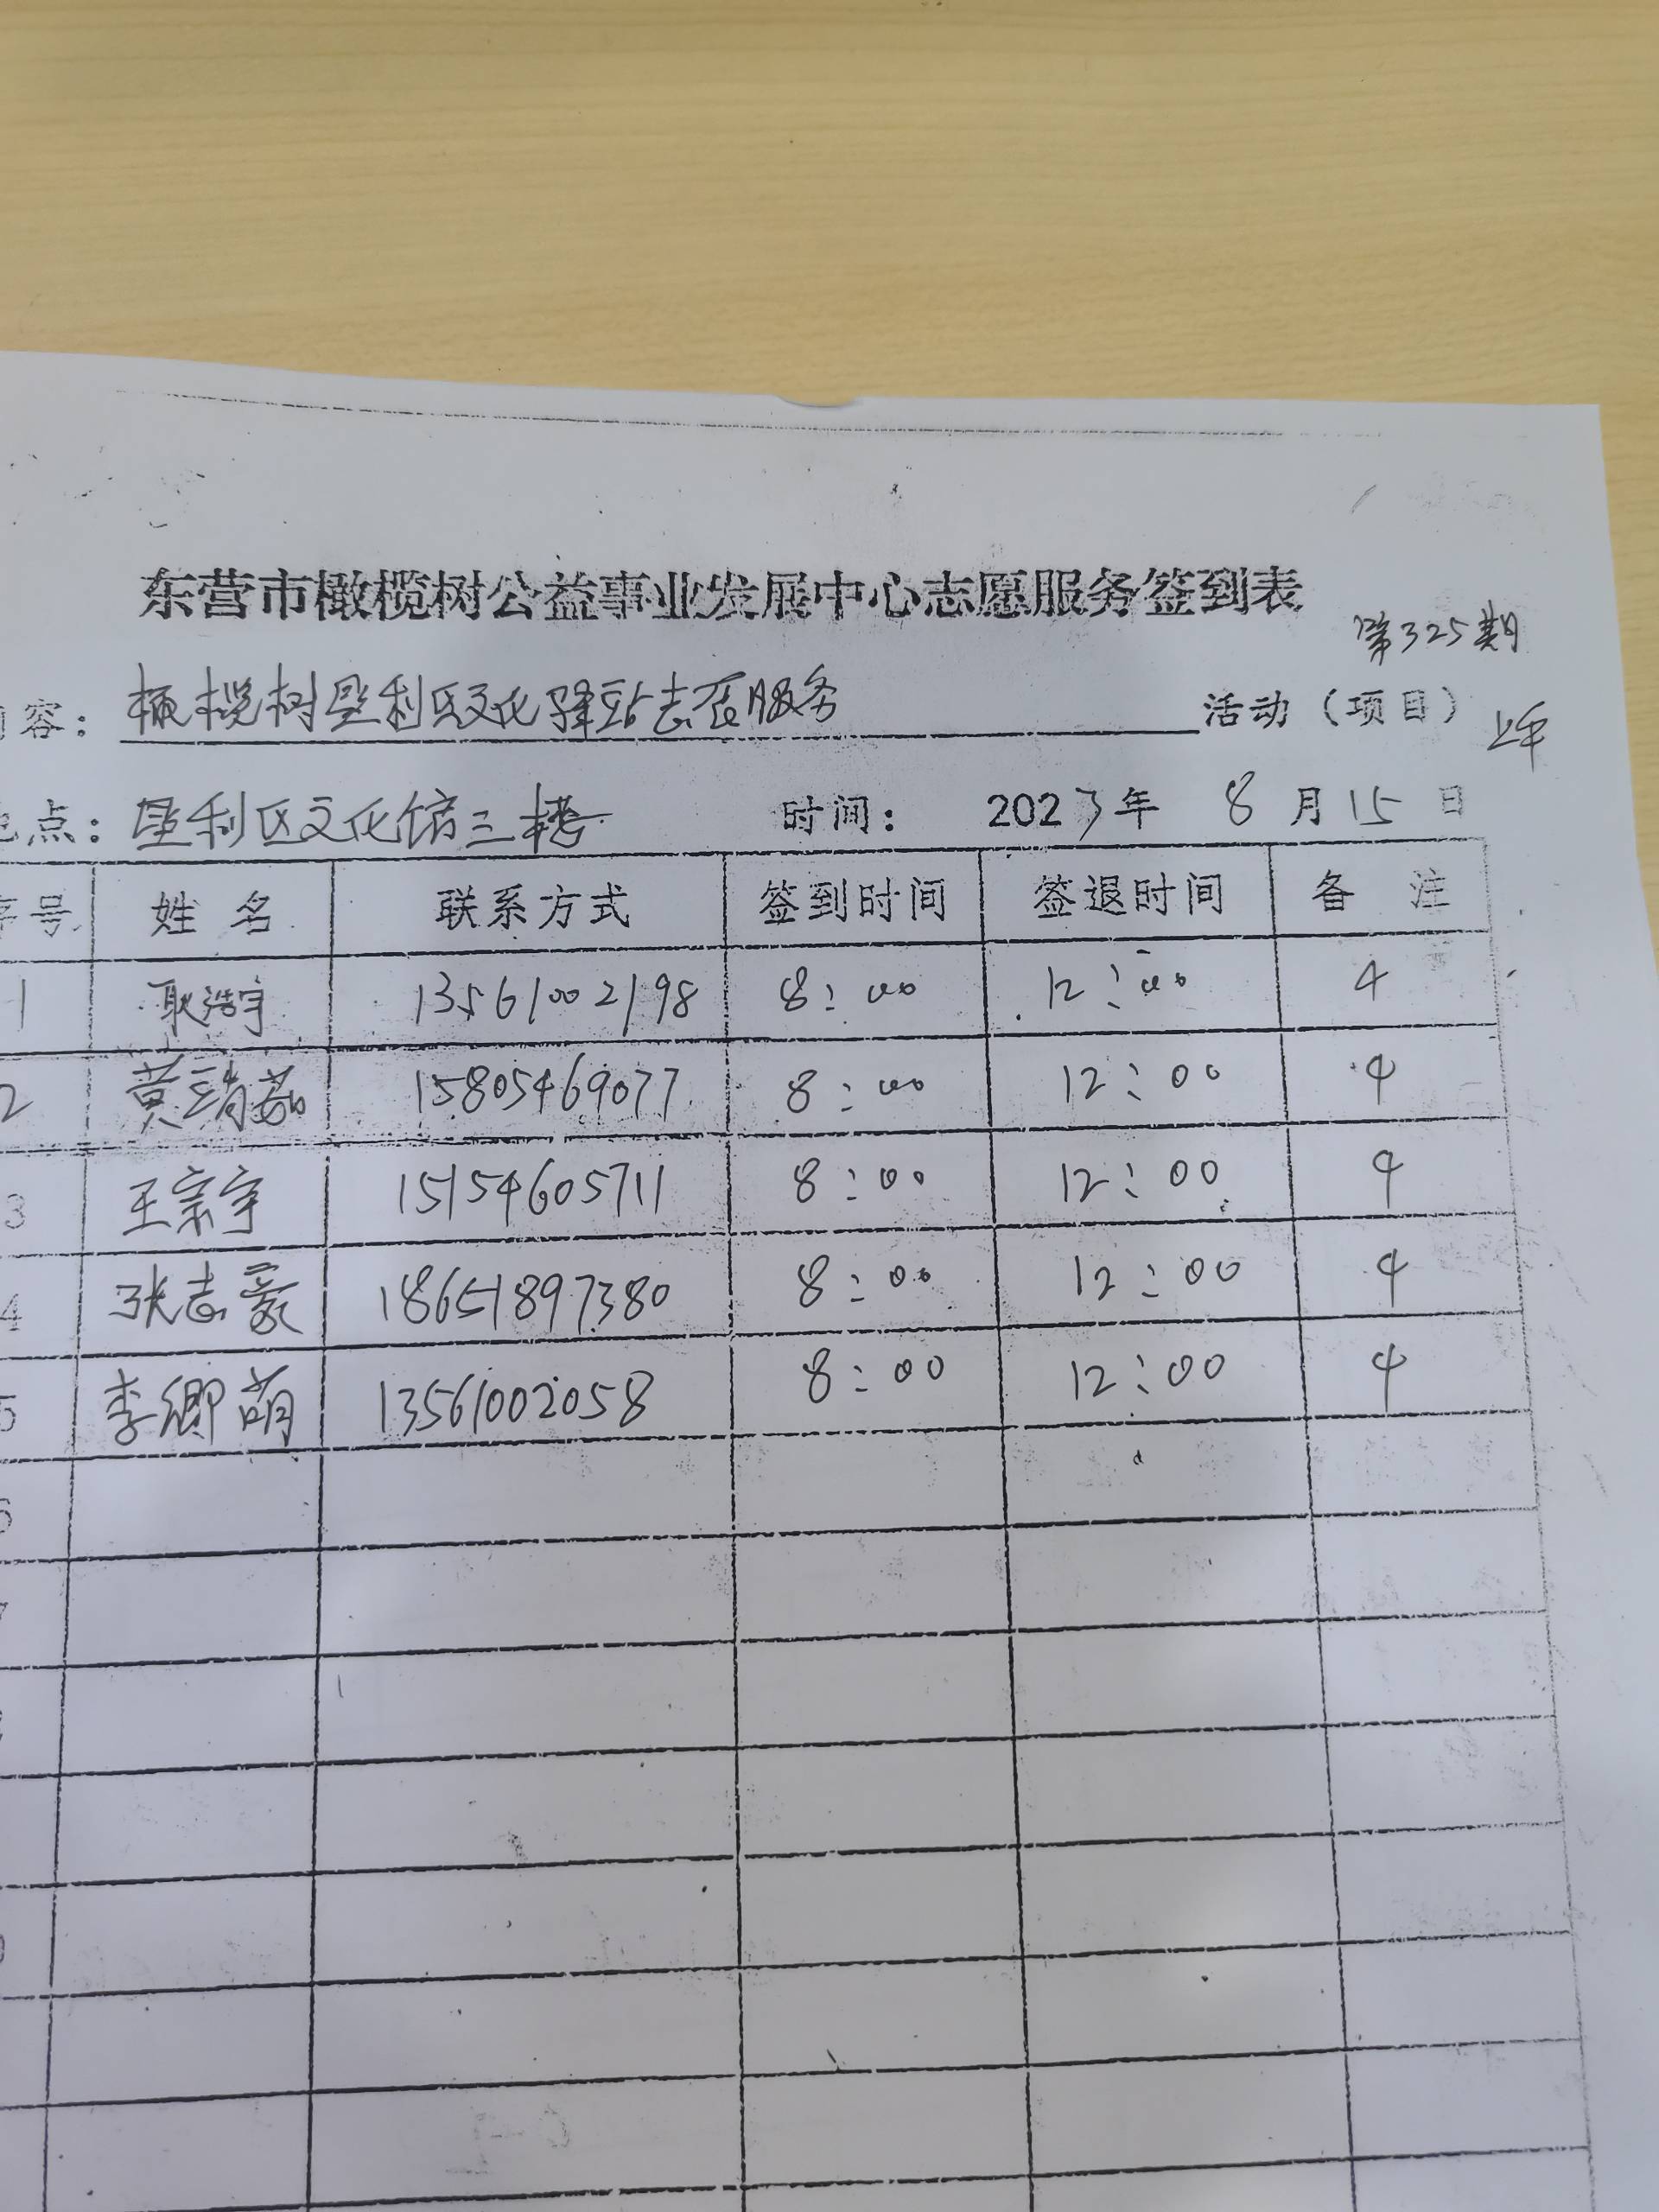 东营市橄榄树公益事业发展中心志愿服务签到表
第325期
容：橄榄树垦利区文化驿站志愿服务 活动（项目）
上午
点：垦利区文化馆三楼 时间： 2023年 8月15日
序号 姓名 联系方式 签到时间 签退时间 备注
1 耿浩宇 13561002198 8:00 12:00 4
2 黄靖茹 15805469077 8:00 12:00 4
3 王宗宇 15154605711 8:00 12:00 4
4 张志豪 18651897380 8:00 12:00 4
5 李卿萌 13561002058 8:00 12:00 4
6
7